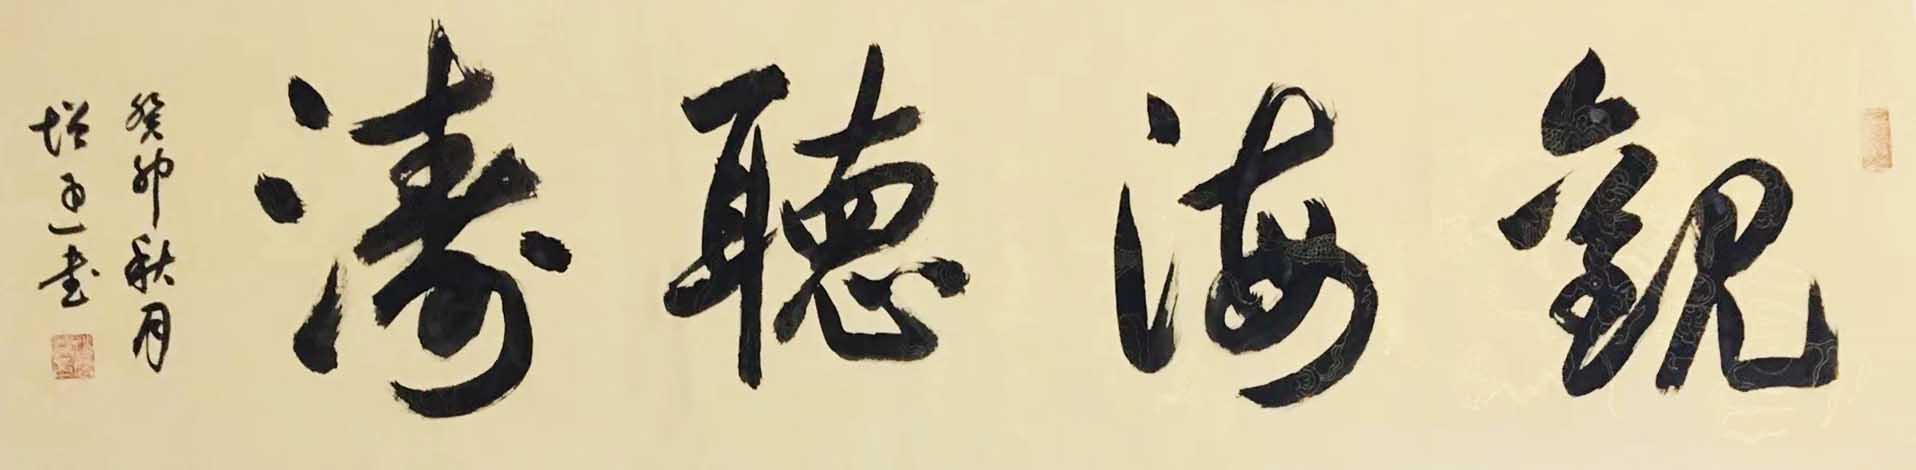 觀海聽濤
癸卯秋月
增玉書